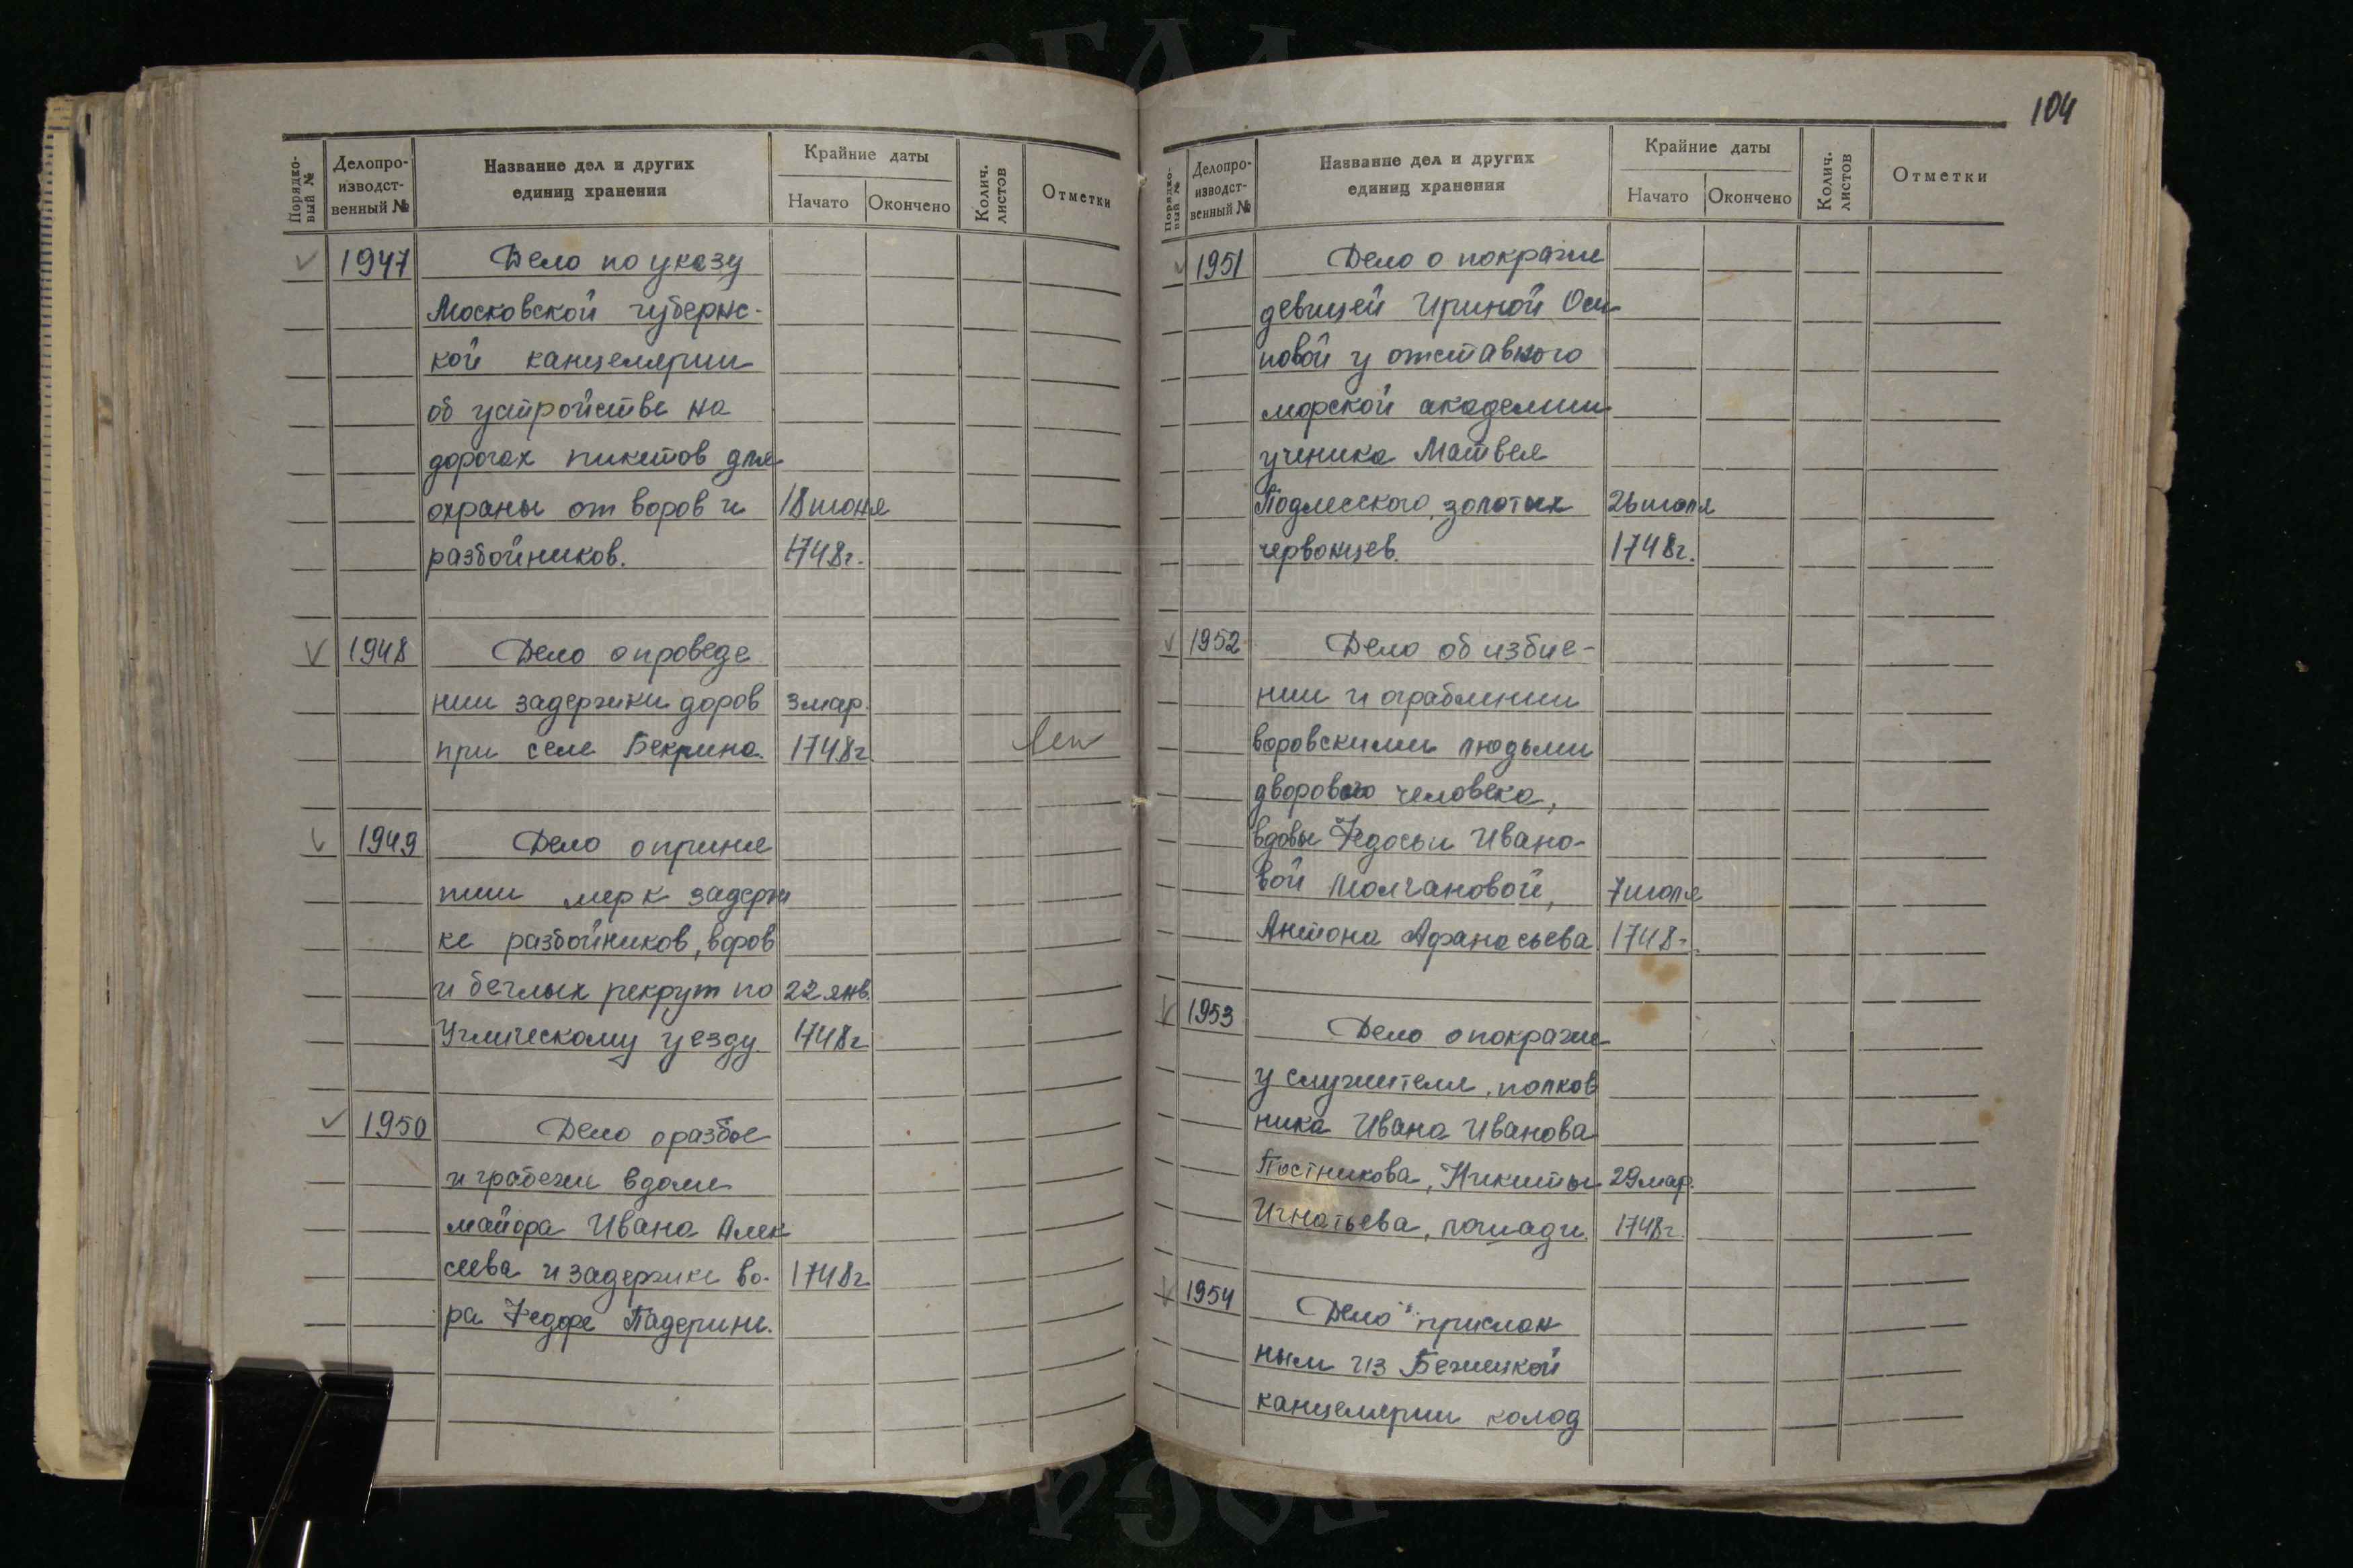 Порядко-
вый №
Делопро-
изводст-
венный №
Название дел и других
единиц хранения
Крайние даты
Начато
Окончено
Колич.
листов
Отметки
1947 Дело по указу
Московской губернс-
кой канцелярии
об устройстве на
дорогах пикетов для
охраны от воров и 18 июня
разбойников. 1748г.
1948 Дело о проведе
нии задержки доров 3 мар.
при селе Бекрина. 1748г
1949 Дело о приня
тии мер к задерж
ке разбойников, воров
и беглых рекрут по 22 янв.
Угличскому уезду 1748г
1950 Дело о разбое
и грабеже в доме
майора Ивана Алек
сеева и задержке во- 1748г
ра Федора Падерина.
104
Порядко-
вый №
Делопро-
изводст-
венный №
Название дел и других
единиц хранения
Крайние даты
Начато
Окончено
Колич.
листов
Отметки
1951 Дело о покраже
девицей Ириной Оси
повой у отставного
морской академии
ученика Матвея
Подлесского, золотых 26 июля
червонцев. 1748г.
1952 Дело об избие-
нии и ограблении
воровскими людьми
дворового человека,
вдовы Федосьи Ивано-
вой Молчановой, 7 июля
Антона Афанасьева 1748г.
1953 Дело о покраже
у служителя, полков
ника Ивана Иванова
Постникова, Никиты 29 мар.
Игнатьева, лошади 1748г.
1954 Дело прислан
ным из Бежецкой
канцелярии колод